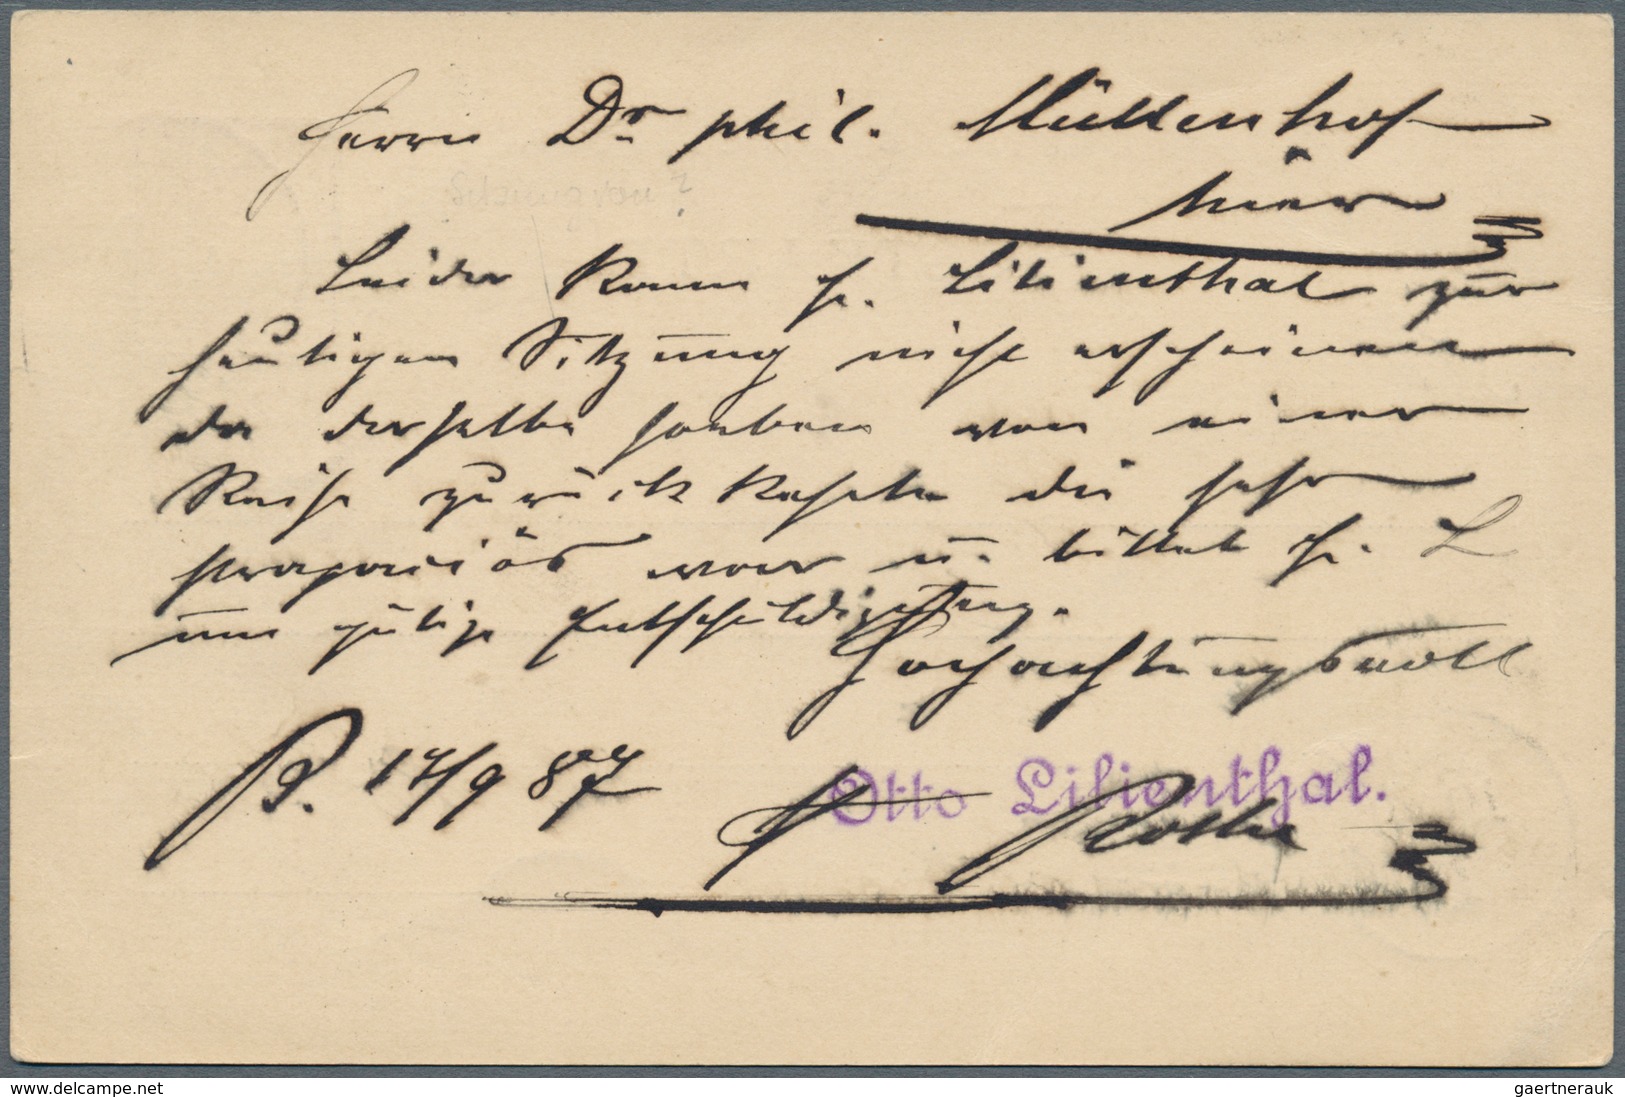 Herrn Dr. phil. Müllenhof
hier
Leider kann H. Lilienthal zur
heutigen Sitzung nicht erscheinen
da derselbe soeben von einer
Reise zurück kehrte die sehr
strapaciös war u. bittet H. L
um gütige Entschuldigung.
Hochachtungsvoll
B. 17/9 87
Otto Lilienthal.
Rothe
www.delcampe.net
gaertnerauk